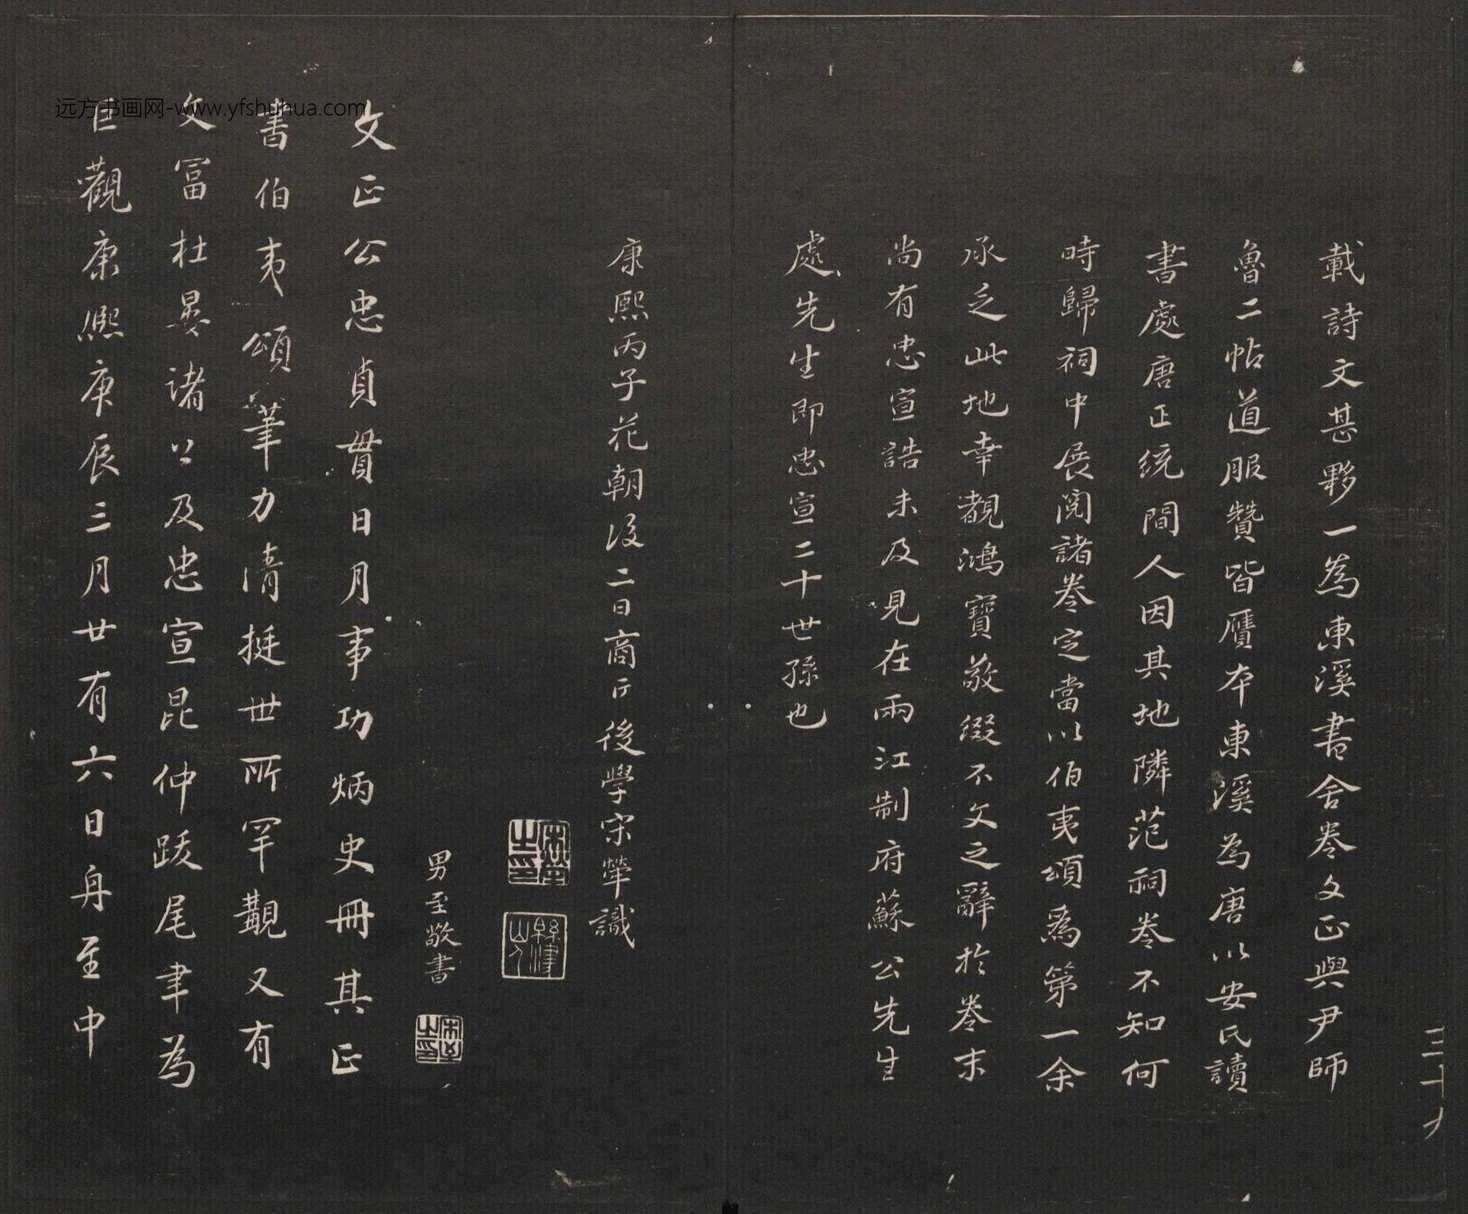 載詩文甚夥一為東溪書舍卷文正與尹師
魯二帖道服贊皆贗本東溪為唐以安氏讀
書處唐正統間人因其地隣范祠卷不知何
時歸祠中展閱諸卷定當以伯夷頌為第一余
承乏此地幸覩鴻寶敬綴不文之辭於卷末
尚有忠宣誥未及見在兩江制府蘇公先生
處先生即忠宣二十世孫也
康熙丙子花朝後二日商丘後學宋犖識
宋犖之印
緜津山人
男至敬書
宋至之印
文正公忠貞貫日月事功炳史冊其正
書伯夷頌筆力清挺世所罕覯又有
文富杜晏諸公及忠宣昆仲跋尾聿為
巨觀康熙庚辰三月廿有六日舟至中
三十九
远方书画网-www.yfshuhua.com